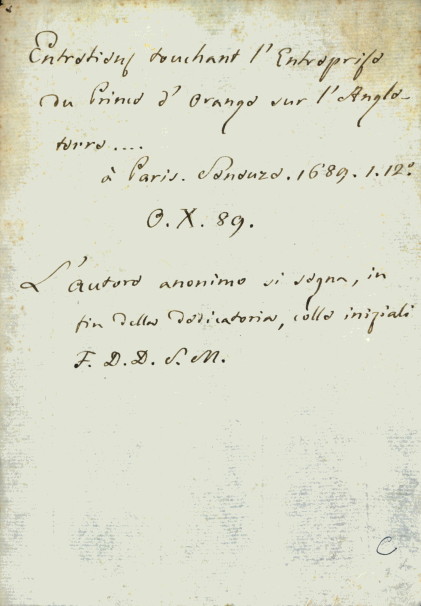 Entretiens touchant l'Entreprise
du Prince d'Orange sur l'Angle-
terre....
à Paris. Seneuze. 1689. 1. 12°
O. X. 89.
L'autore anonimo si segna, in
fin della dedicatoria, colle iniziali
F. D. D. S. M.
C